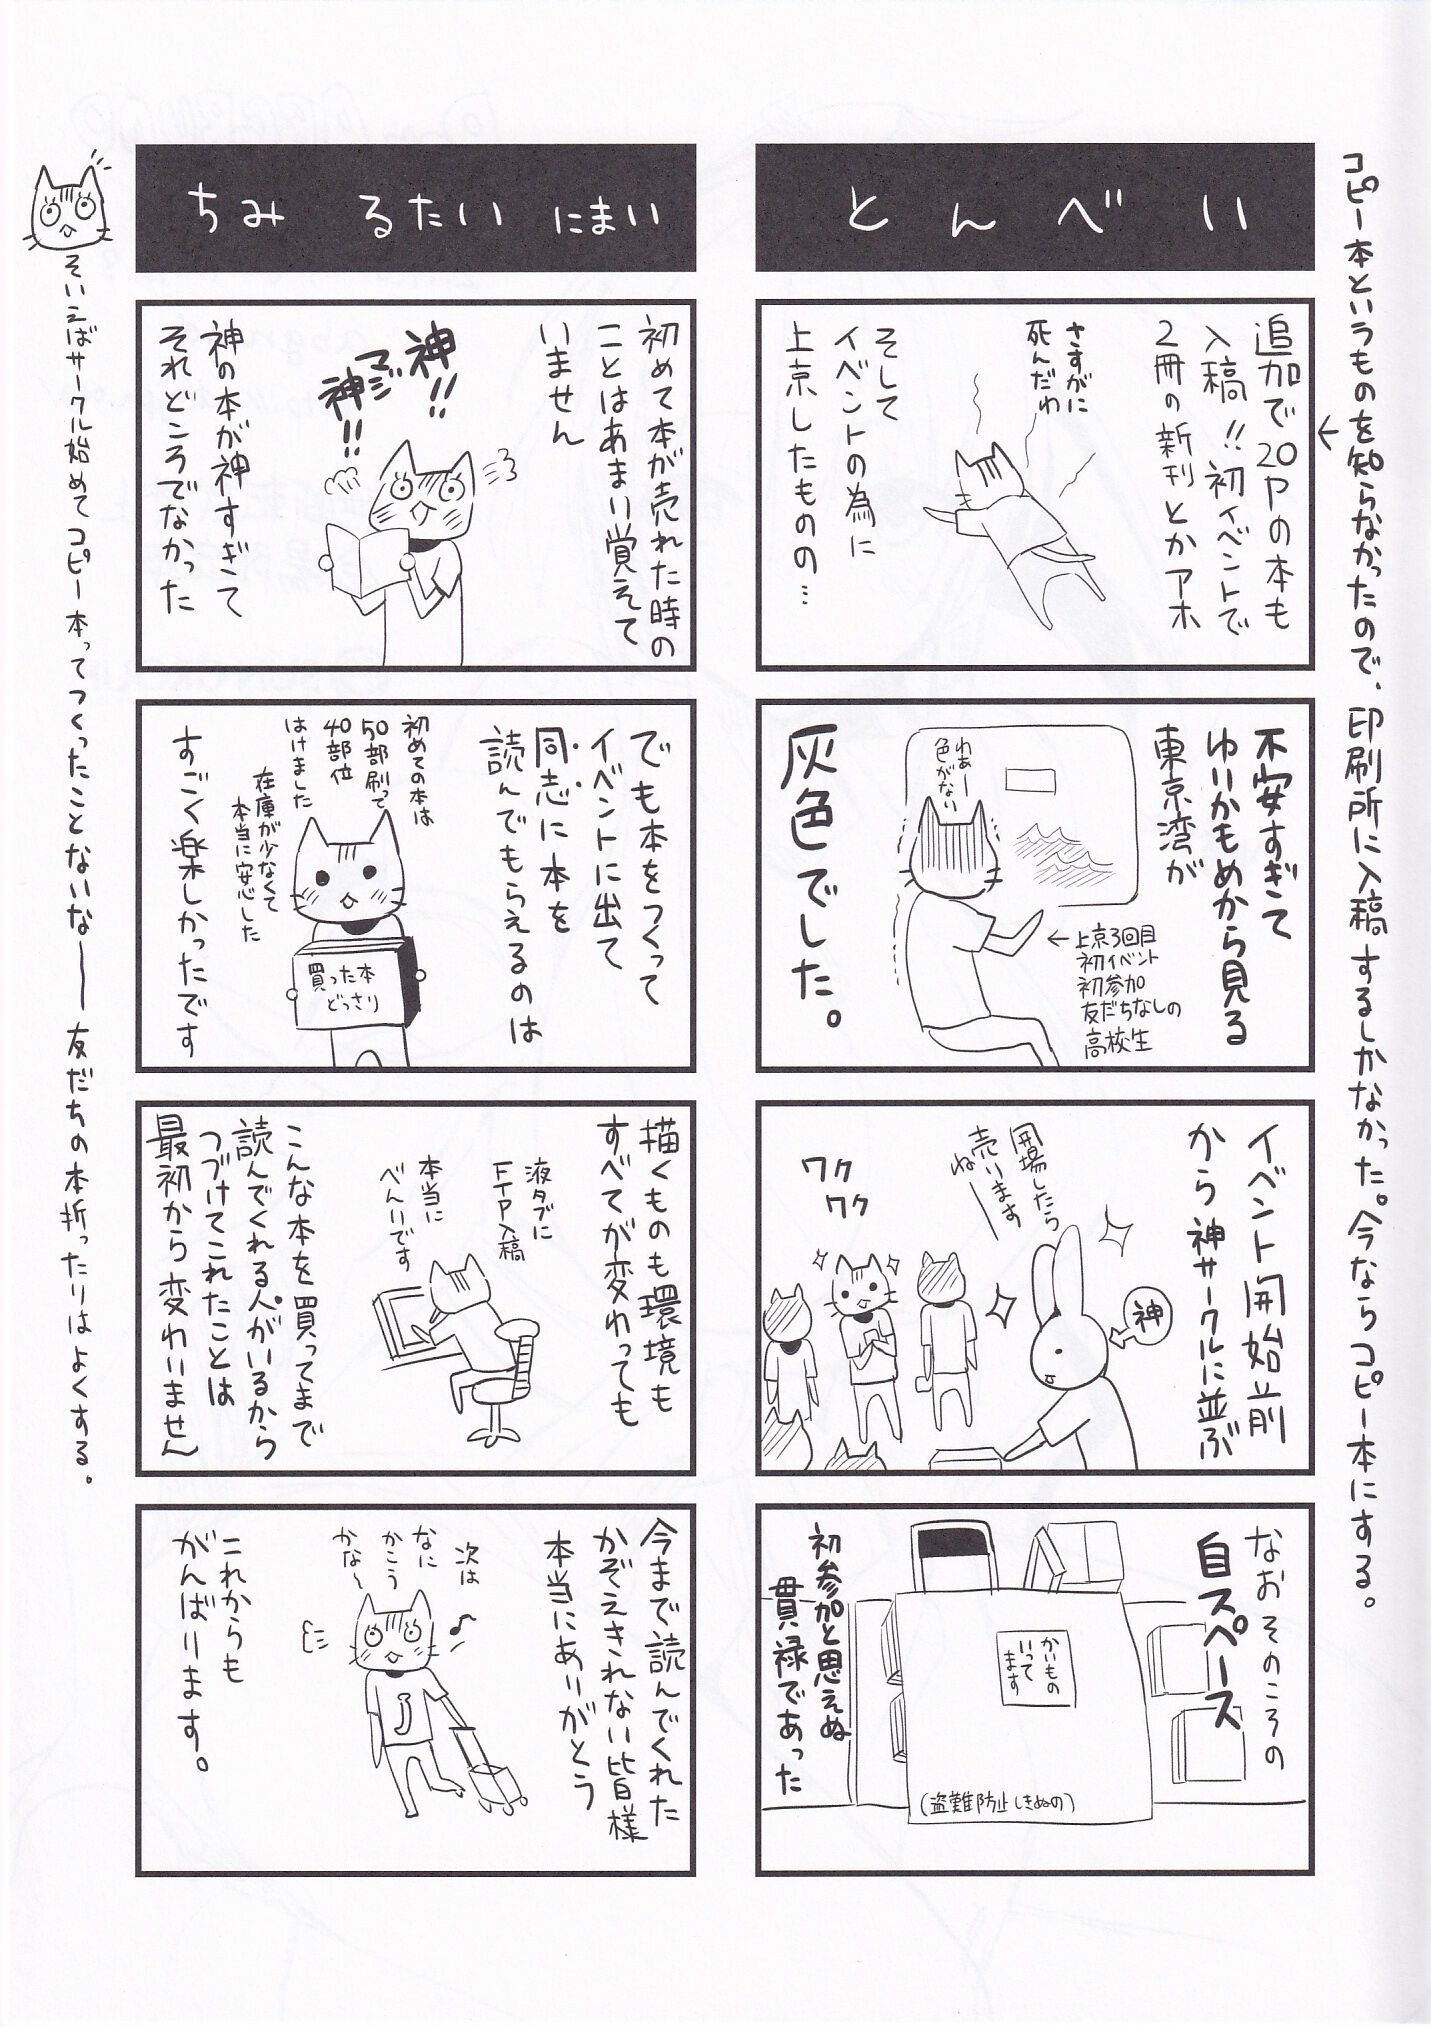 コピー本というものを知らなかったので、印刷所に入稿するしかなかった。今ならコピー本にする。
とんべい
追加で20Pの本も
入稿!!初イベントで
2冊の新刊とかアホ
さすがに
死んだわ
そして
イベントの為に
上京したものの…
不安すぎて
ゆりかもめから見る
東京湾が
わぁー
色がない
灰色でした。
←上京3回目
初イベント
初参加
友だちなしの
高校生
イベント開始前
から神サークルに並ぶ
神
開場したら
売りますね―
ワク
ワク
なおそのころの
自スペース
かいもの
いって
ます
(盗難防止しきぬの)
初参加と思えぬ
貫禄であった
ちみ るたい にまい
初めて本が売れた時の
ことはあまり覚えて
いません
神!!
マジ
神!!
神の本が神すぎて
それどころでなかった
でも本をつくって
イベントに出て
同志に本を
読んでもらえるのは
初めての本は
50部刷って
40部位
はけました
在庫が少なくて
本当に安心した
買った本
どっさり
すごく楽しかったです
描くものも環境も
すべてが変わっても
液タブに
FTP入稿
本当に
べんりです
こんな本を買ってまで
読んでくれる人がいるから
つづけてこれたことは
最初から変わりません
今まで読んでくれた
かぞえきれない皆様
本当にありがとう
次は
なに
かこう
かな~
これからも
がんばります。
そいえばサークル始めてコピー本ってつくったことないな――友だちの本折ったりはよくする。